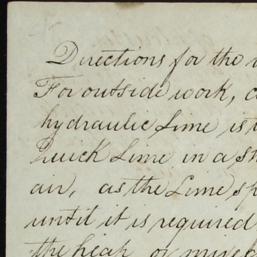 Directions for the
For outside work,
hydraulic Lime is
Quick Lime in a
air, as the Lime
until it is required
the heap or